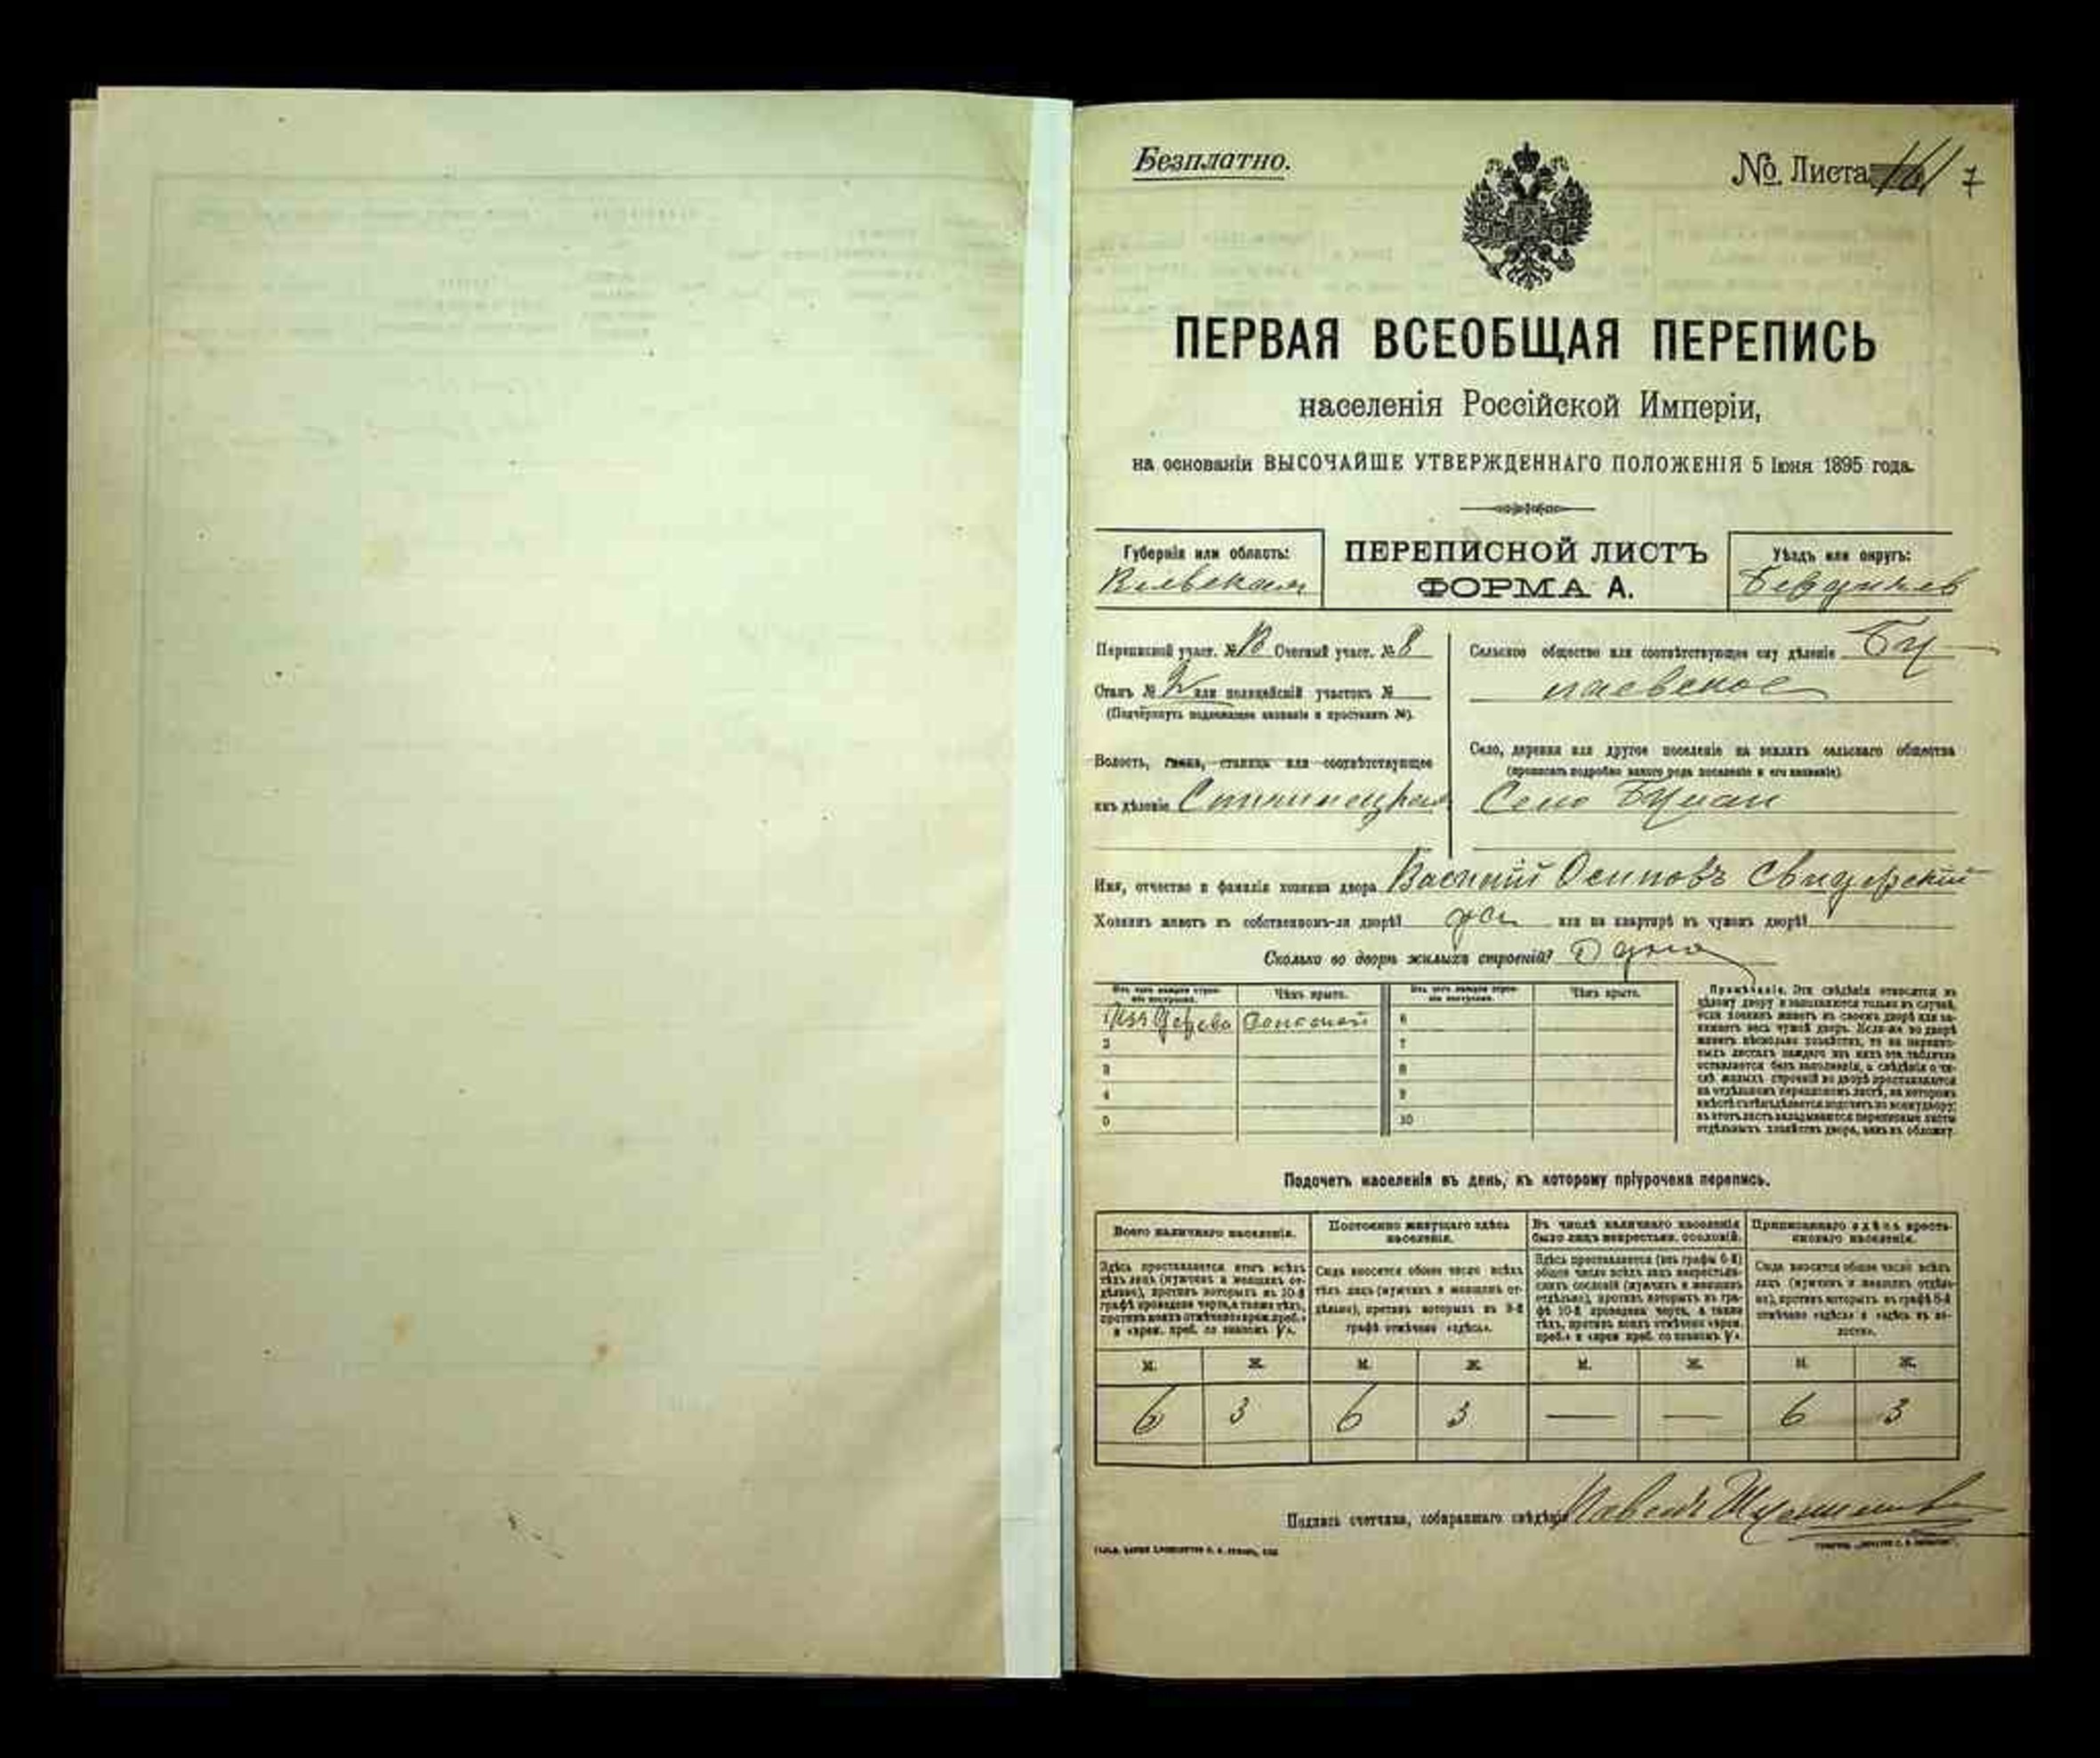 Безплатно.
№ Листа 7
ПЕРВАЯ ВСЕОБЩАЯ ПЕРЕПИСЬ
населенія Россійской Имперіи,
на основаніи ВЫСОЧАЙШЕ УТВЕРЖДЕННАГО ПОЛОЖЕНІЯ 5 Іюня 1895 года.
Губернія или область:
ПЕРЕПИСНОЙ ЛИСТЪ
ФОРМА А.
Уѣздъ или округъ:
Переписной участ. № Счетный участ. № 8
Станъ № 2 или полицейскій участокъ №
(Подчеркнуть подлежащее названіе и проставить №).
Волость, гмина, станица или соотвѣтствующее
имъ дѣленіе
Сельское общество или соотвѣтствующее ему дѣленіе Бу-
лаевское
Село, деревня или другое поселеніе на земляхъ сельскаго общества
(прописать подробно какого рода поселеніе и его названіе)
Село Булаи
Имя, отчество и фамилія хозяина двора Василій Осиповъ Свидерскій
Хозяинъ живетъ въ собственномъ-ли дворѣ? да или на квартирѣ въ чужомъ дворѣ?
Сколько во дворѣ жилыхъ строеній? Одно
Изъ чего каждое строеніе построено.
Чѣмъ крыто.
Изъ чего каждое строеніе построено.
Чѣмъ крыто.
1 Изъ дерева Соломой 6
2 7
3 8
4 9
5 10
Примѣчаніе. Эти свѣдѣнія относятся къ
цѣлому двору и заполняются только въ случаѣ,
если хозяинъ живетъ въ своемъ дворѣ или за-
нимаетъ весь чужой дворъ. Если-же во дворѣ
живетъ нѣсколько хозяйствъ, то на перепис-
ныхъ листахъ каждаго изъ нихъ эта табличка
оставляется безъ заполненія, а свѣдѣнія о чи-
слѣ жилыхъ строеній во дворѣ проставляются
на отдѣльномъ переписномъ листѣ, на которомъ
вмѣстѣ съ тѣмъ дѣлается подсчетъ по всему двору;
въ этотъ листъ вкладываются переписные листы
отдѣльныхъ хозяйствъ двора, какъ въ обложку.
Подсчетъ населенія въ день, къ которому пріурочена перепись.
Всего наличнаго населенія.
Постоянно живущаго здѣсь
населенія.
Въ числѣ наличнаго населенія
было лицъ некрестьян. сословій.
Приписаннаго здѣсь кресть-
янскаго населенія.
Здѣсь проставляется итогъ всѣхъ
тѣхъ лицъ (мужчинъ и женщинъ от-
дѣльно), противъ которыхъ въ 10-й
графѣ проведена черта, а также тѣхъ,
противъ коихъ отмѣчено «врем. преб.»
и «врем. преб. со знакомъ V».
Сюда вносится общее число всѣхъ
тѣхъ лицъ (мужчинъ и женщинъ от-
дѣльно), противъ которыхъ въ 9-й
графѣ отмѣчено «здѣсь».
Здѣсь проставляется (изъ графы 6-й)
общее число всѣхъ лицъ некрестьян-
скихъ сословій (мужчинъ и женщинъ
отдѣльно), противъ которыхъ въ гра-
фѣ 10-й проведена черта, а также
тѣхъ, противъ коихъ отмѣчено «врем.
преб.» и «врем. преб. со знакомъ V».
Сюда вносится общее число всѣхъ
лицъ (мужчинъ и женщинъ отдѣль-
но), противъ которыхъ въ графѣ 8-й
отмѣчено «здѣсь» и «здѣсь въ во-
лости».
М. Ж. М. Ж. М. Ж. М. Ж.
6 3 6 3 — — 6 3
Подпись счетчика, собиравшаго свѣдѣнія Павелъ